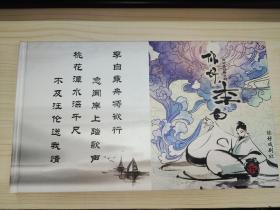 李白乘舟将欲行
忽闻岸上踏歌声
桃花潭水深千尺
不及汪伦送我情
你好李白